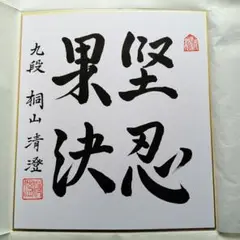 堅忍
果決
九段 桐山清澄